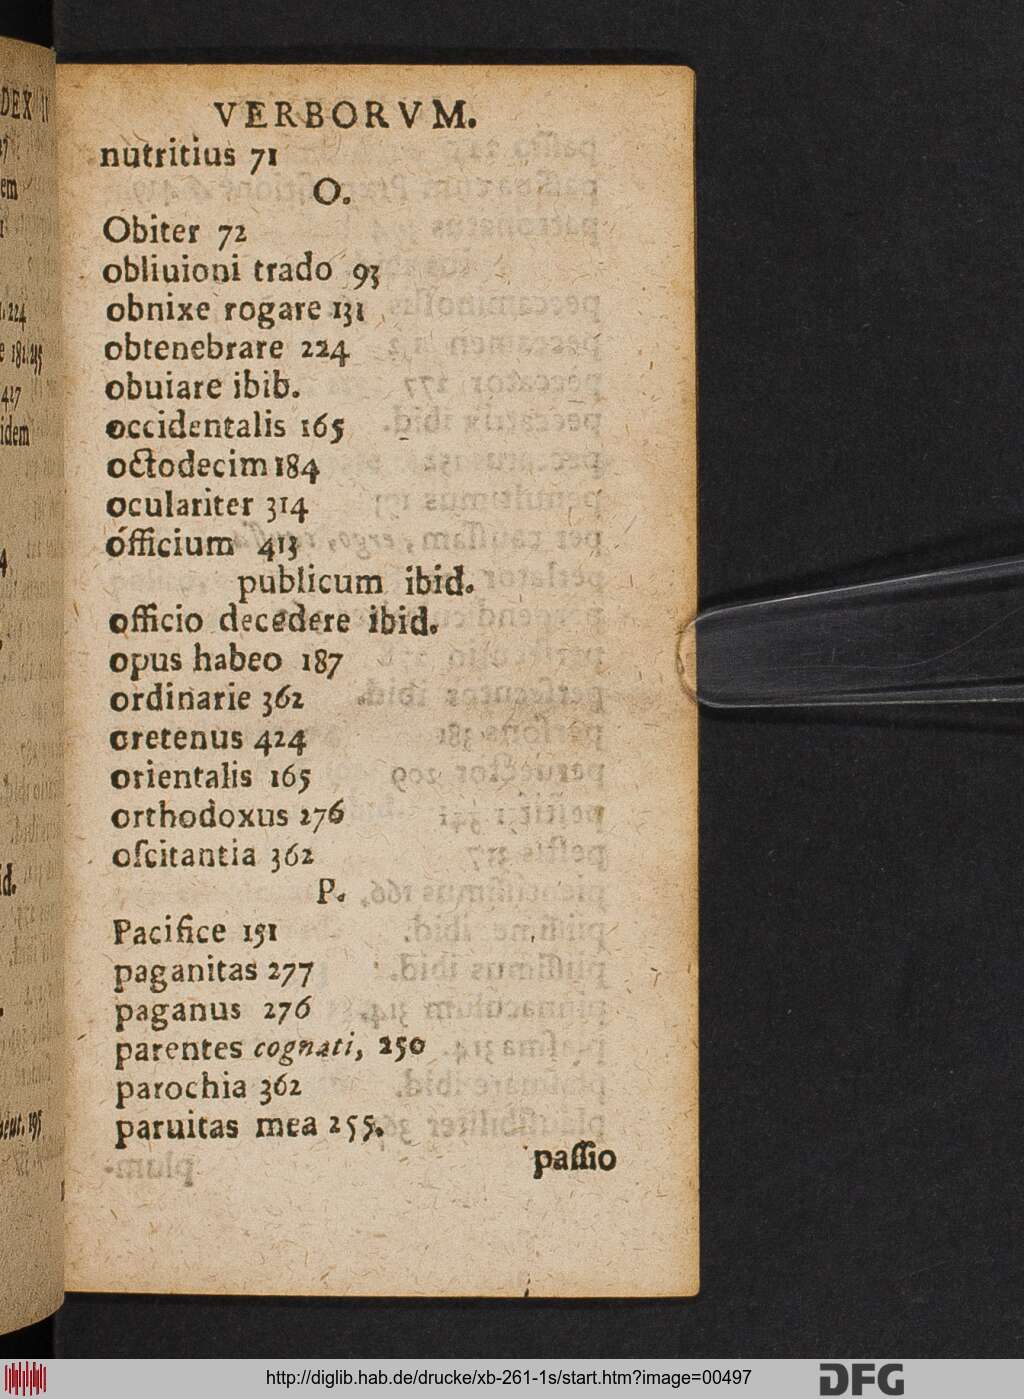 VERBORVM.
nutritius 71
O.
Obiter 72
obliuioni trado 93
obnixe rogare 131
obtenebrare 224
obuiare ibib.
occidentalis 165
octodecim 184
oculariter 314
ófficium 413
publicum ibid.
officio decedere ibid.
opus habeo 187
ordinarie 362
oretenus 424
orientalis 165
orthodoxus 276
oſcitantia 362
P.
Pacifice 151
paganitas 277
paganus 276
parentes cognati, 250
parochia 362
paruitas mea 255.
paſſio
DEX
em
224
181. 215
427
idem
4
id.
195
http://diglib.hab.de/drucke/xb-261-1s/start.htm?image=00497
DFG